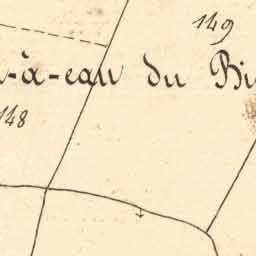 149
-à-eau du Bi
148